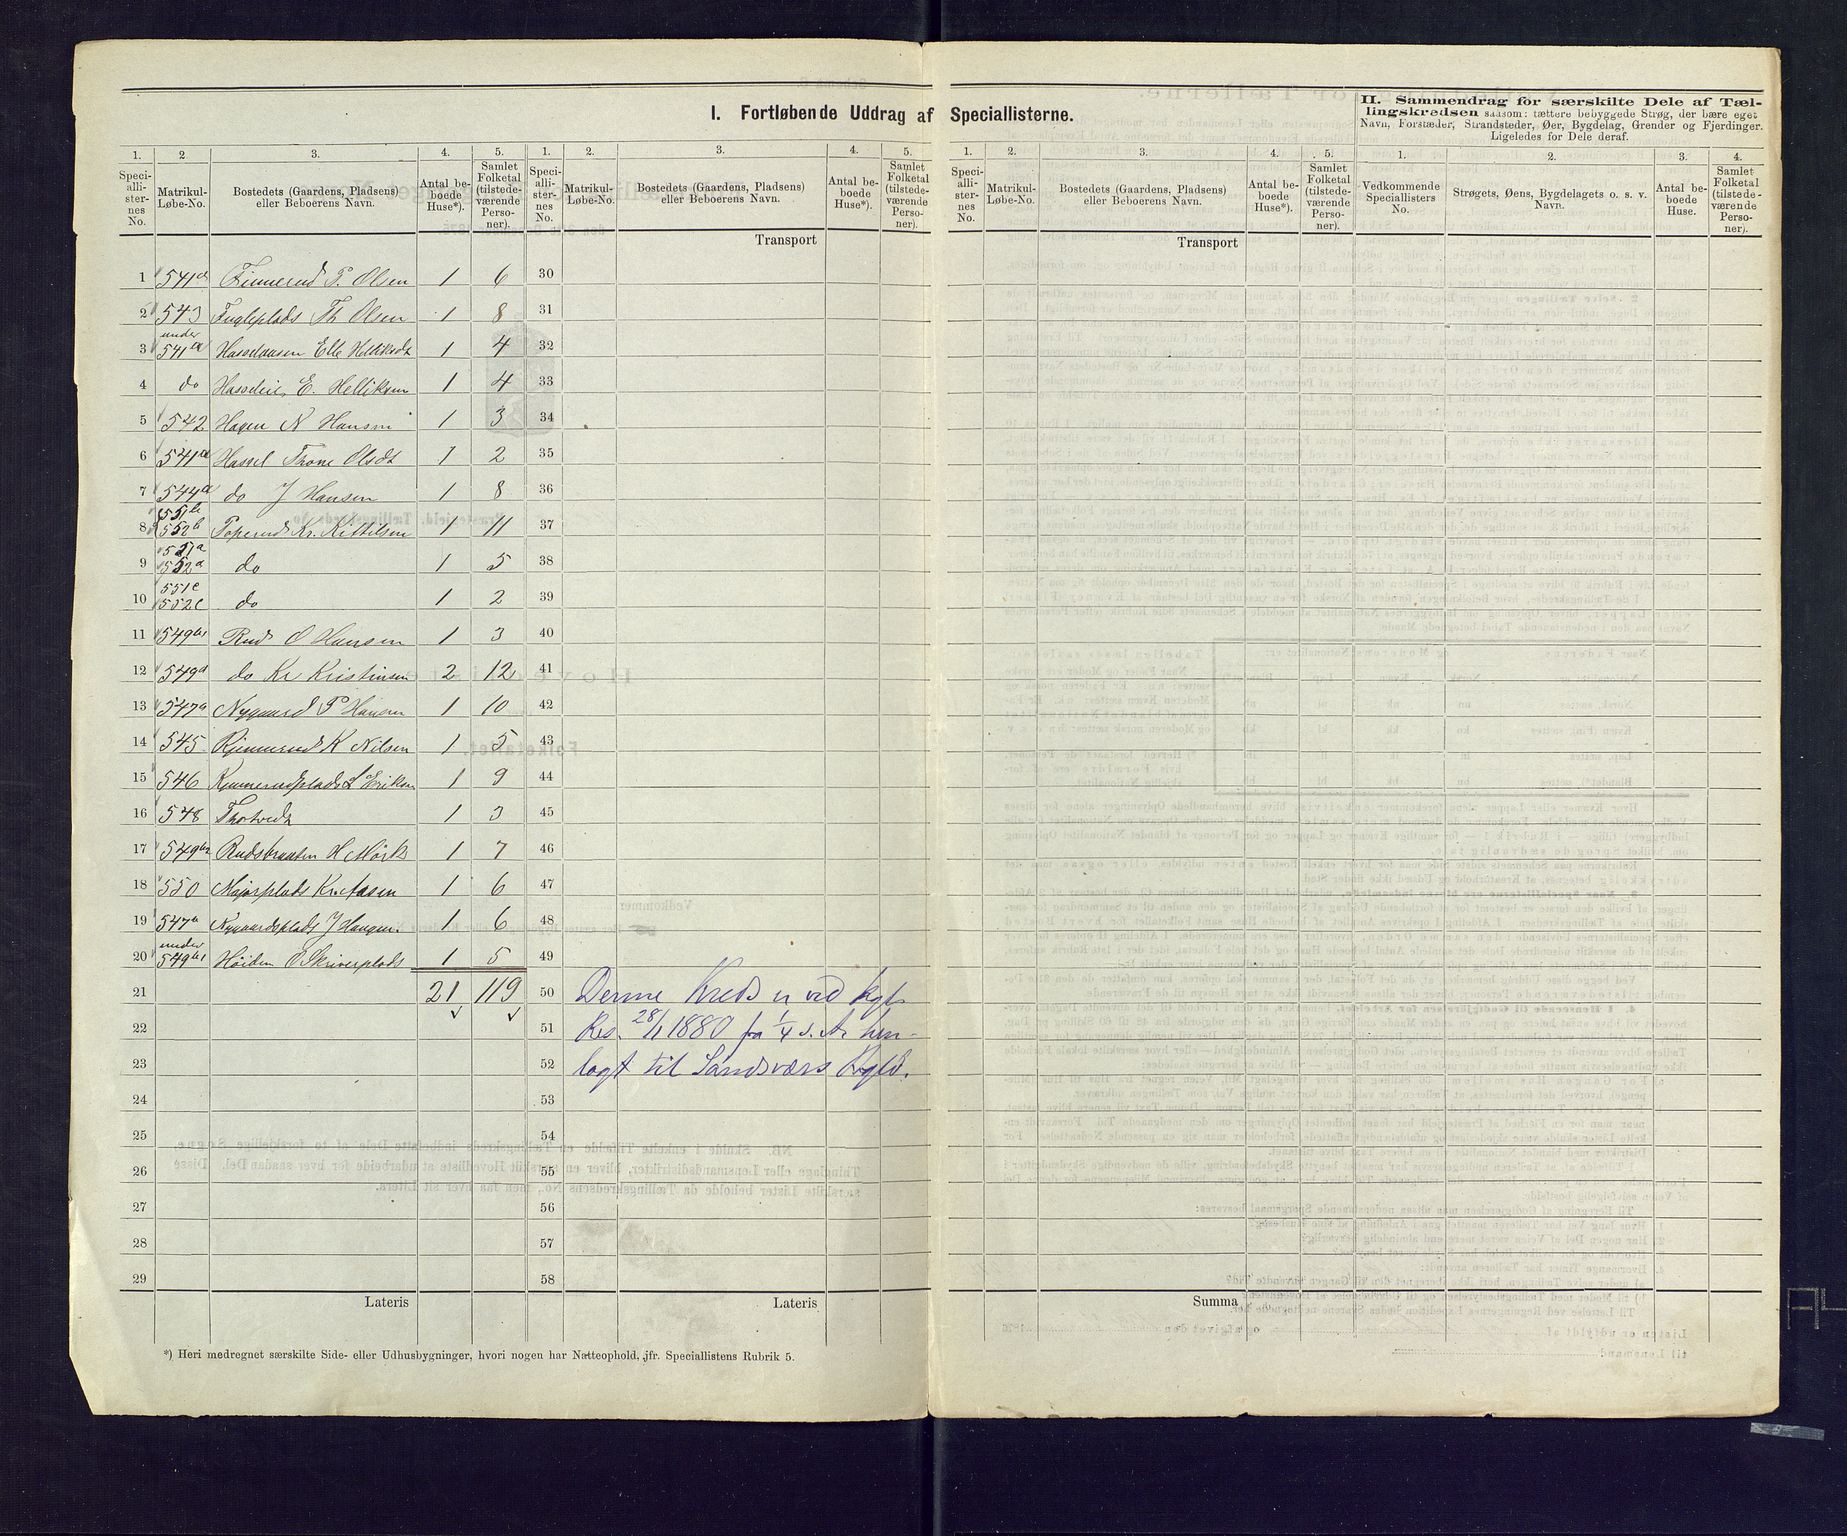 I. Fortløbende Uddrag af Speciallisterne.
II. Sammendrag for særskilte Dele af Tællingskredsen saasom: tættere bebyggede Strøg, der bære eget Navn, Forstæder, Strandsteder, Øer, Bygdelag, Grender og Fjerdinger. Ligeledes for Dele deraf.
1. 2 3. 4. 5. 1. 2. 3. 4. 5. 1. 2. 3. 4. 5. 1. 2. 3. 4.
Speciallisternes No. Matrikul-Løbe-No. Bostedets (Gaardens, Pladsens) eller Beboerens Navn. Antal beboede Huse*). Samlet Folketal (tilstedeværende Personer).
Speciallisternes No. Matrikul-Løbe-No. Bostedets (Gaardens, Pladsens) eller Beboerens Navn. Antal beboede Huse*). Samlet Folketal (tilstedeværende Personer).
Speciallisternes No. Matrikul-Løbe-No. Bostedets (Gaardens, Pladsens) eller Beboerens Navn. Antal beboede Huse*). Samlet Folketal (tilstedeværende Personer).
Vedkommende Speciallisters No. Strøgets, Øens, Bygdelagets o. s. v. Navn. Antal beboede Huse. Samlet Folketal (tilstedeværende Personer).
Transport Transport
1 541a Finnerud P. Olsen 1 6 30
2 543 Fugleplads Th Olsen 1 8 31
3 under 541a Hasselaasen Elle Helliksdt 1 4 32
4 do Hasseleie E. Helliksen 1 4 33
5 542 Hagen N Hansen 1 3 34
6 541a Hassel Trone Olsdt 1 2 35
7 544a do J Hansen 1 8 36
8 551b 552b Toperud Kr. Kittilsen 1 11 37
9 551a 552a do 1 5 38
10 551c 552c do 1 2 39
11 549b1 Rud O Hansen 1 3 40
12 549a do Kr Kristinsen 2 12 41
13 547a Nygaard P Hansen 1 10 42
14 545 K Nilsen 1 5 43
15 546 L Eriksen 1 9 44
16 548 Thotvedt 1 3 45
17 549b2 Rudsbraaten H Mørk 1 7 46
18 550 Majorplads Kr. Aasen 1 6 47
19 547a Nygaardsplads J Haugen. 1 6 48
20 under 549b1 Høiden O Skriverplads 1 5 49
21 21 119 50 Denne Kreds er ved kgl.
22 51 Res. 28/1 1880 fra 1/4 s. A. hen-
23 52 lagt til Sandsværs Pgld.
24 53
25 54
26 55
27 56
28 57
29 58
Lateris Lateris Summa
*) Heri medregnet særskilte Side- eller Udhusbygninger, hvori nogen har Natteophold, jfr. Speciallistens Rubrik 5.